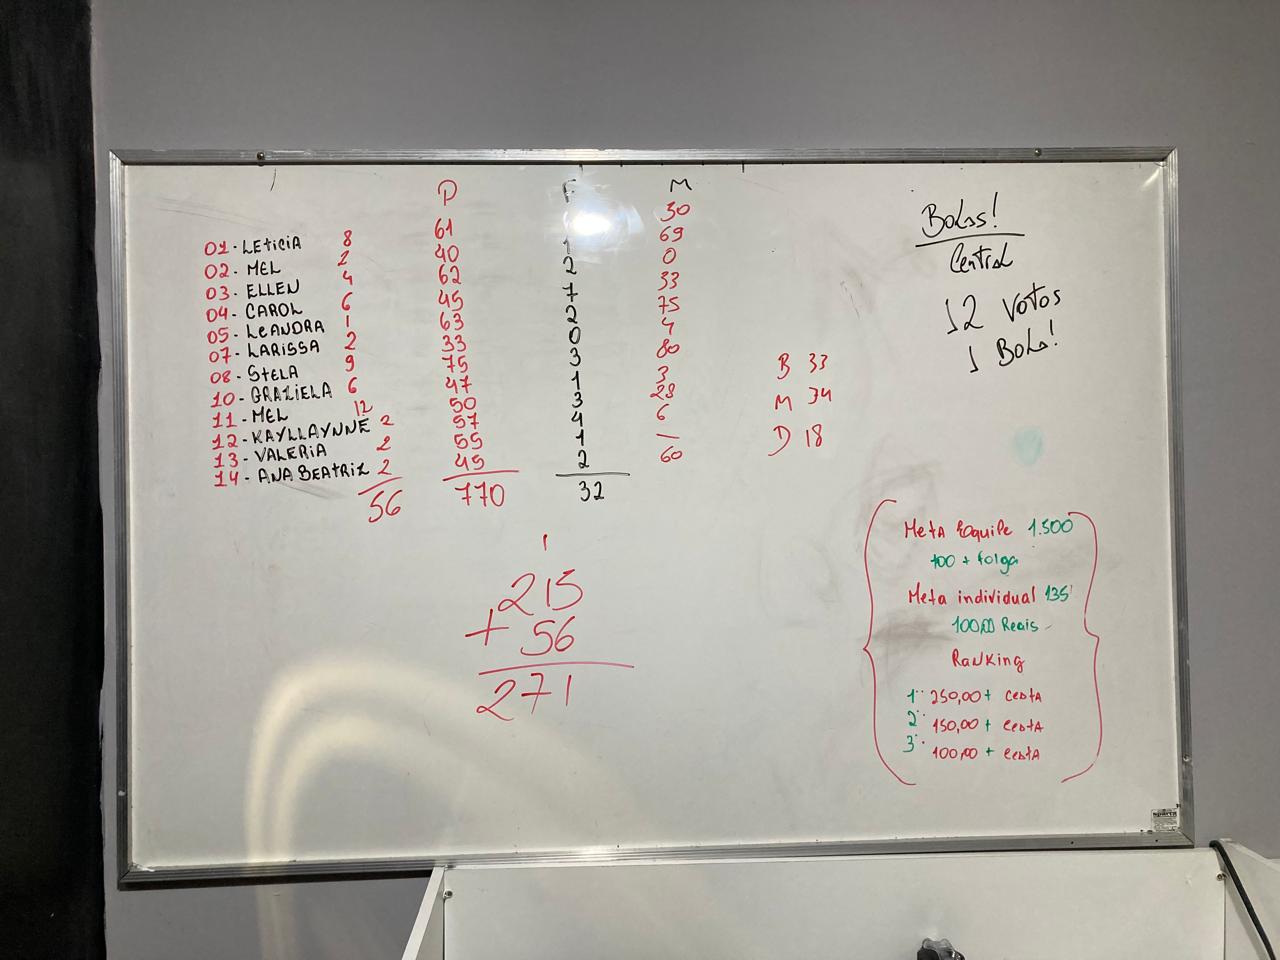 P F M
30
01- LETICIA 8 61 69
02- MEL 2 40 1 0
03- ELLEN 4 62 2 33
04- CAROL 6 45 7 75
05- LEANDRA 1 63 2 4
07- LARISSA 2 33 0 80
08- STELA 9 75 3 3
10- GRAZIELA 6 47 1 28
11- MEL 12 50 3 6
12- KAYLLAYNNE 2 57 4 —
13- VALERIA 2 55 1 60
14- ANA BEATRIZ 2 45 2
56 770 32
215
+ 56
271
B 33
M 34
D 18
Bolas!
Central
12 Votos
1 Bola!
Meta Equipe 1.500
100 + folga
Meta individual 135
100,00 Reais
RaNKing
1º 250,00 + cesta
2º 150,00 + cesta
3º 100,00 + cesta